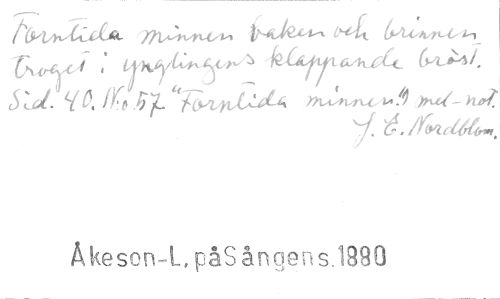 Forntida minnen vaken och brinnen
troget i ynglingens klappande bröst.
Sid. 40. No. 57 "Forntida minnen." med not.
J. E. Nordblom.
Åkeson-L, påSångens.1880